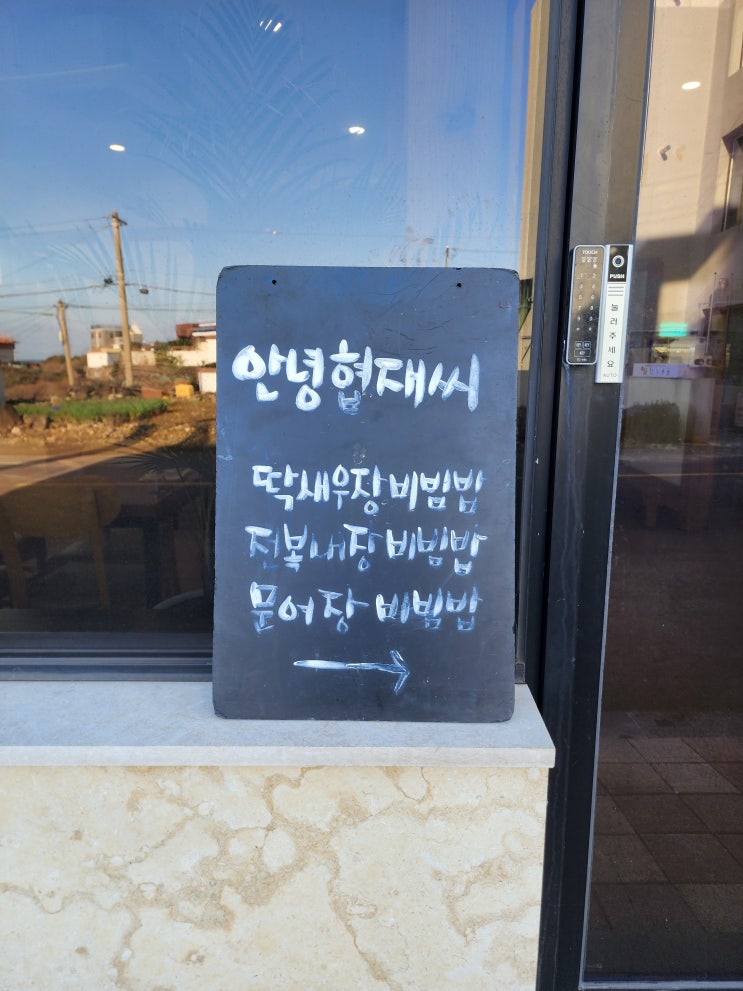 안녕협재씨
딱새우장비빔밥
전복내장비빔밥
문어장 비빔밥
TOUCH
PUSH
눌러주세요
AUTO